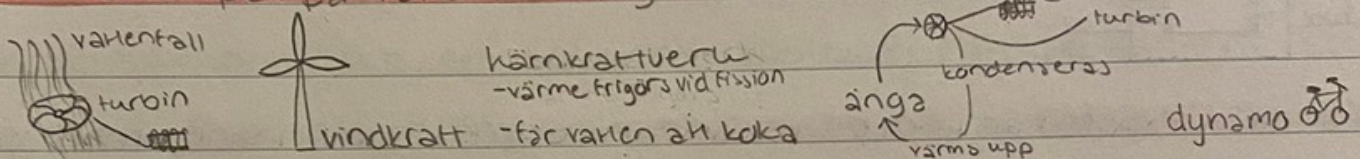 vattenfall
turbin
vindkraft
kärnkraftverk
-värme frigörs vid fission
-får vatten att koka
turbin
kondenseras
ånga
värms upp
dynamo